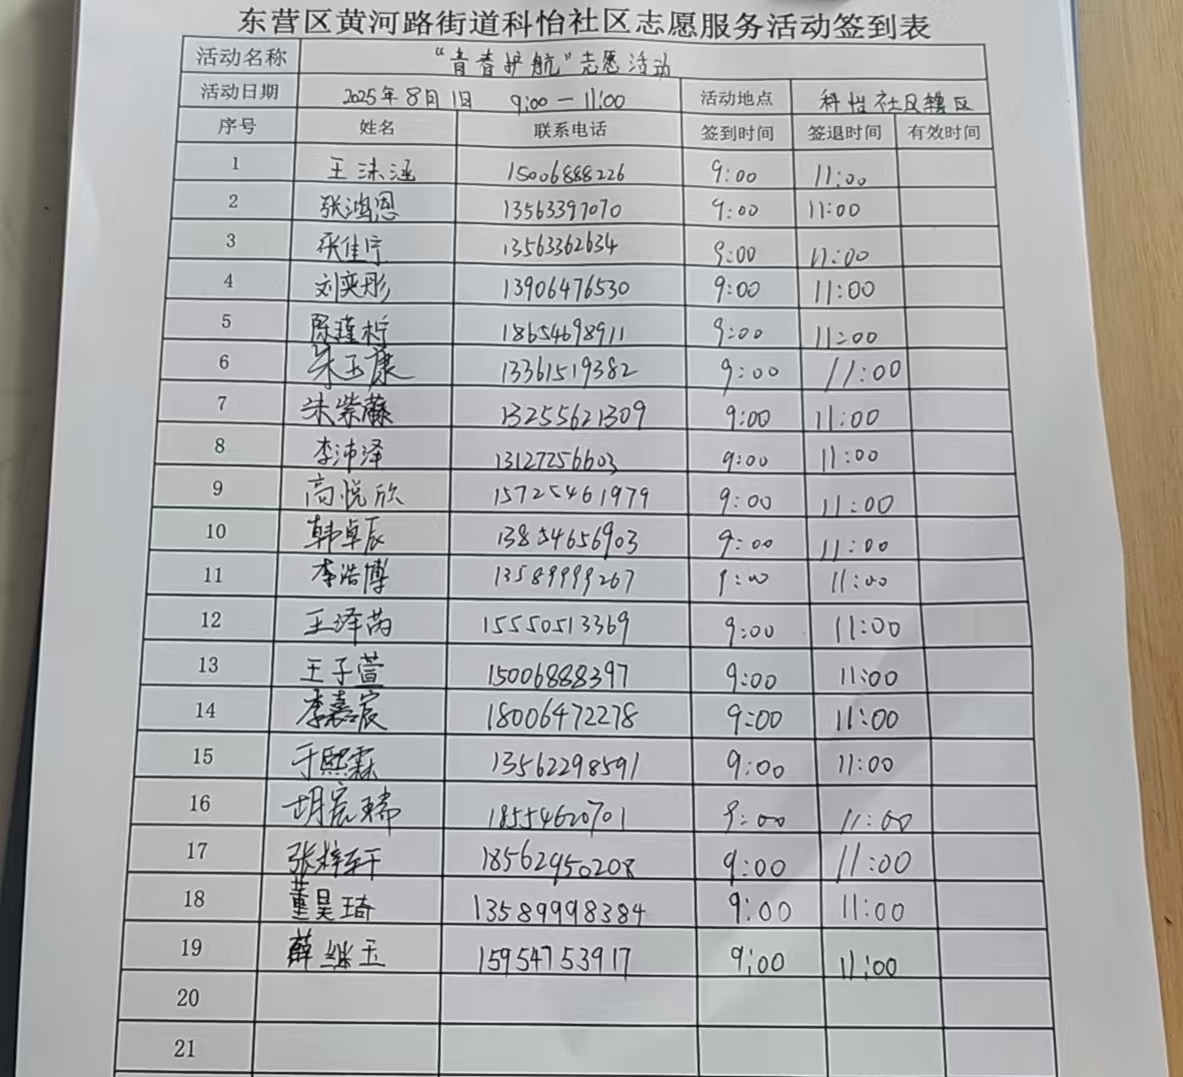 东营区黄河路街道科怡社区志愿服务活动签到表
活动名称 “青春护航”志愿活动
活动日期 2025年8月1日 9:00-11:00 活动地点 科怡社区辖区
序号 姓名 联系电话 签到时间 签退时间 有效时间
1 王沫涵 15006888226 9:00 11:00
2 张鸿恩 13563397070 9:00 11:00
3 张佳宇 13563362634 9:00 11:00
4 刘奕彤 13906476530 9:00 11:00
5 陈瑾柠 18654698911 9:00 11:00
6 朱玉康 13361519382 9:00 11:00
7 朱紫藤 13255621309 9:00 11:00
8 李沛泽 13127256603 9:00 11:00
9 高悦欣 15725461979 9:00 11:00
10 韩卓辰 13854656903 9:00 11:00
11 李浩博 13589999267 9:00 11:00
12 王泽芮 15550513369 9:00 11:00
13 王子萱 15006888397 9:00 11:00
14 李嘉宸 18006472278 9:00 11:00
15 于熙霖 13562298591 9:00 11:00
16 胡宸瑞 18554620701 9:00 11:00
17 张梓轩 18562950208 9:00 11:00
18 董昊琦 13589998384 9:00 11:00
19 薛继玉 15954753917 9:00 11:00
20
21